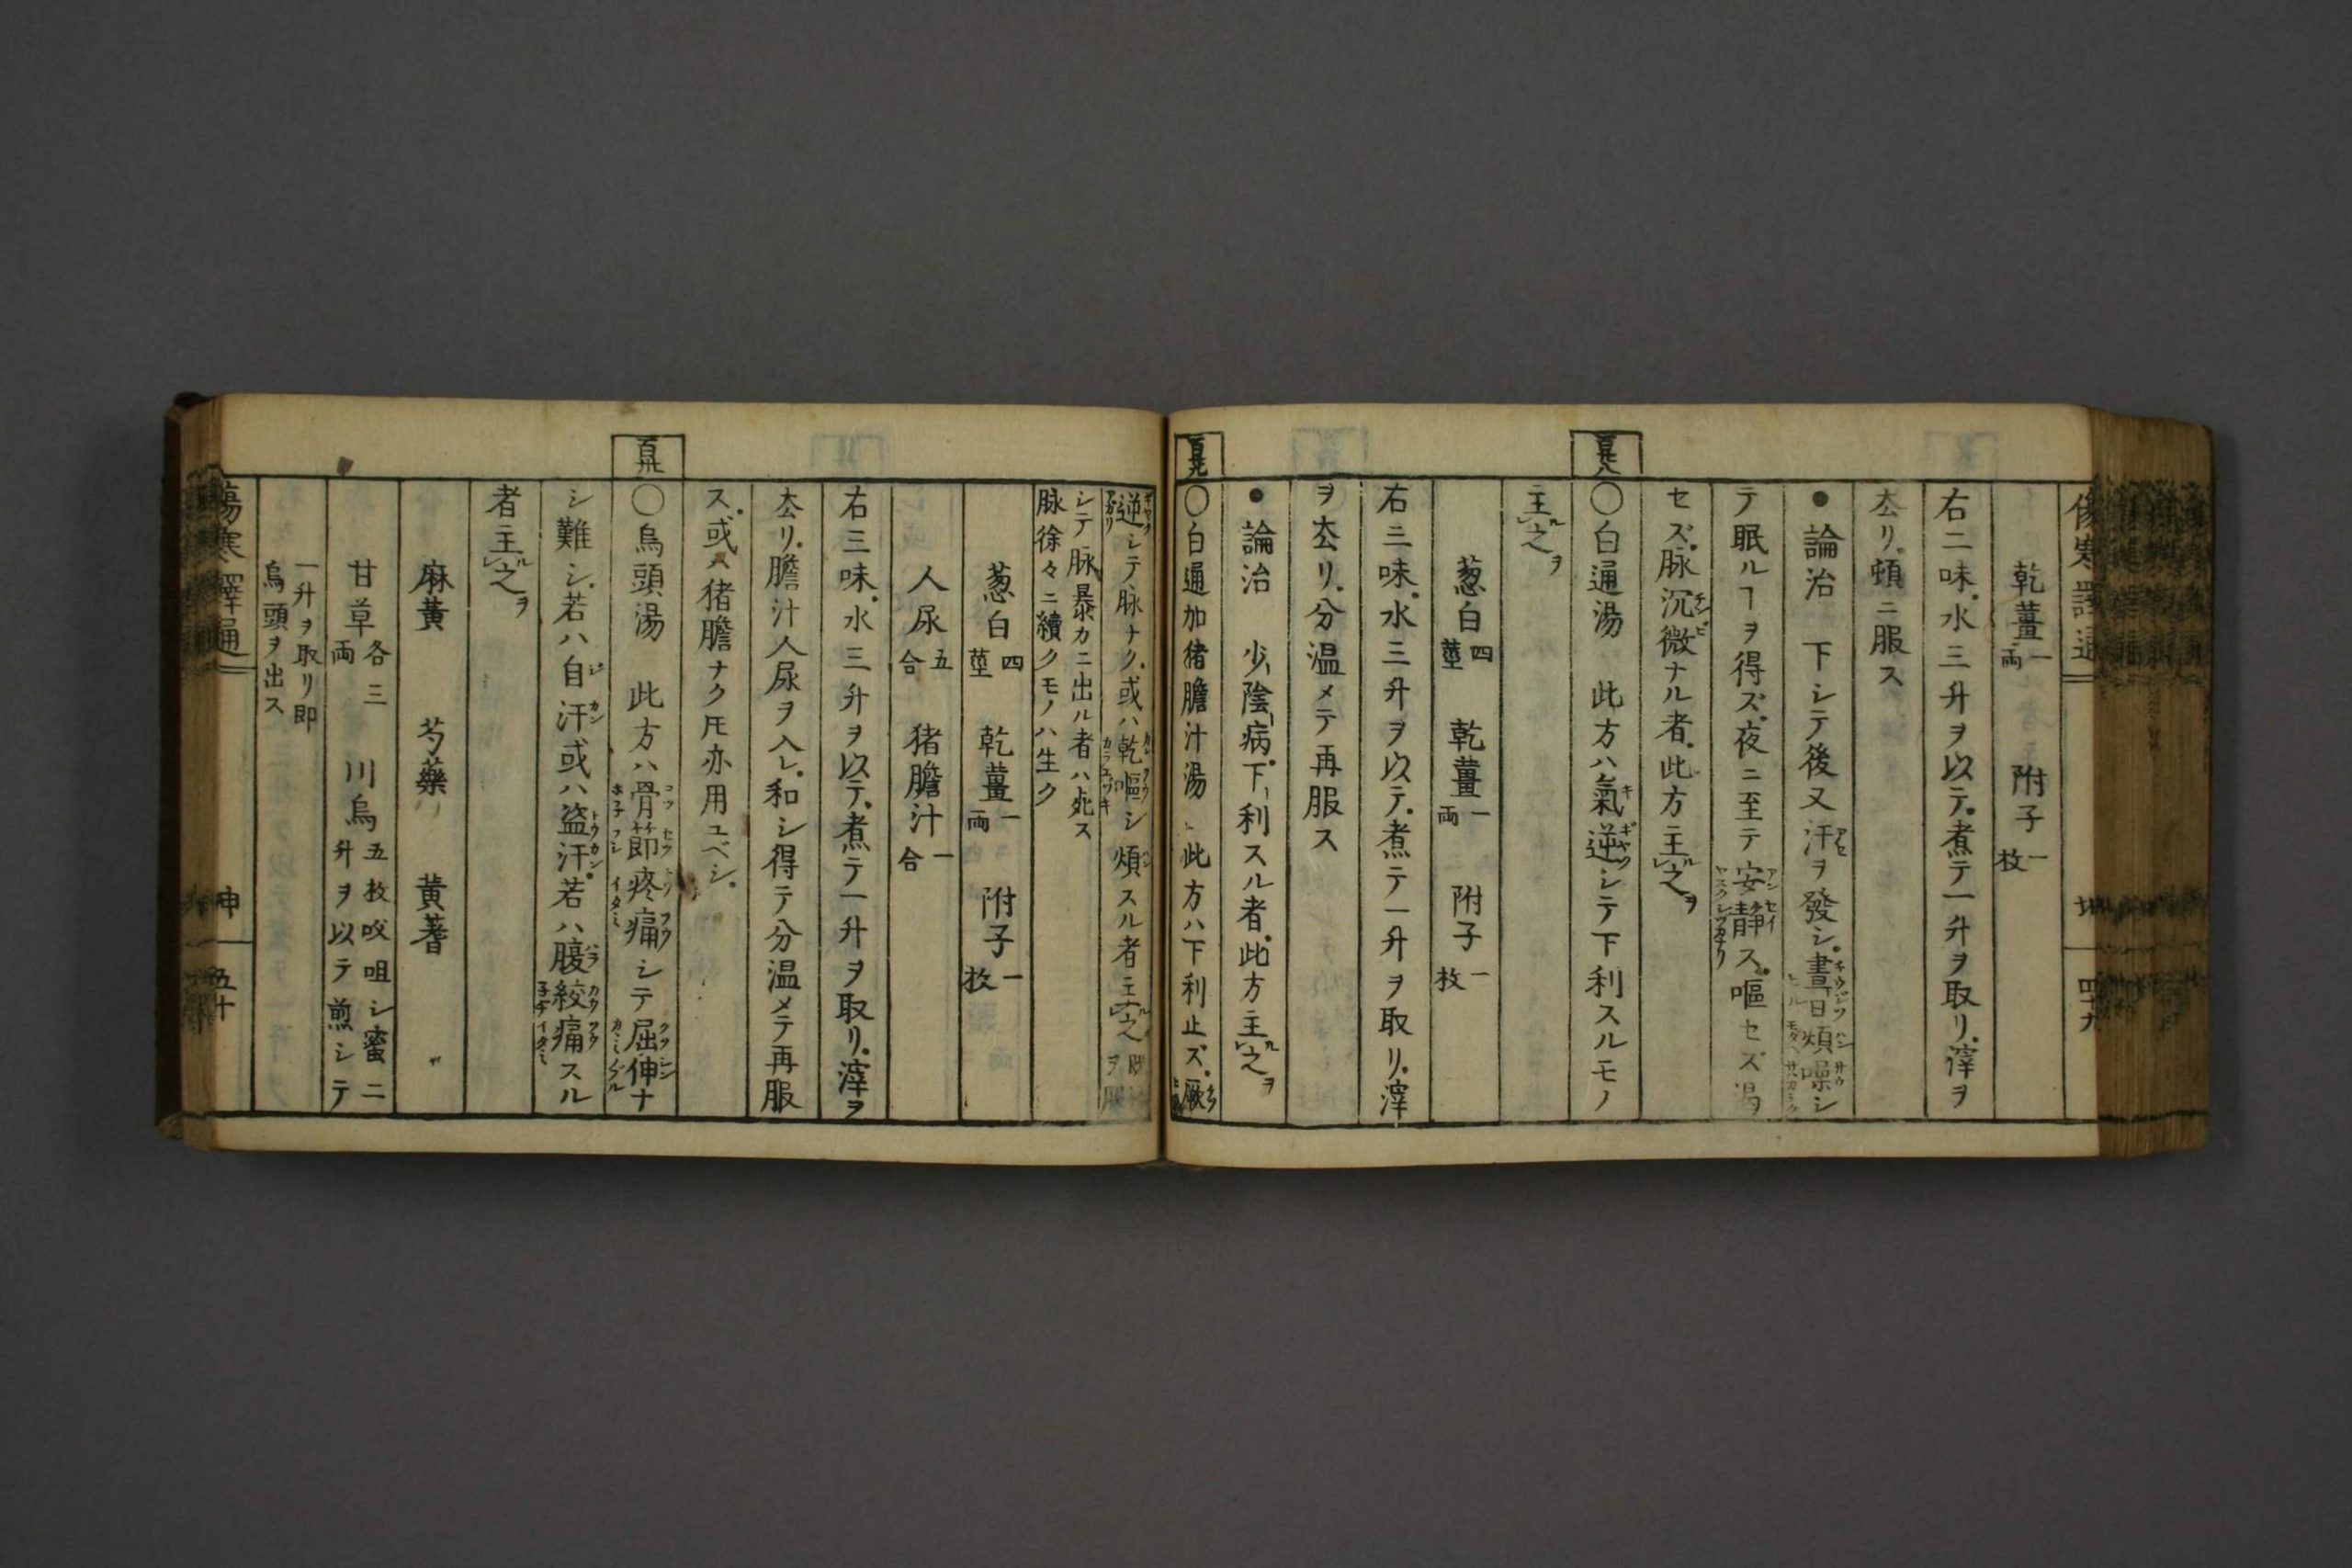 傷寒譯通
四十九
乾薑一両 附子一枚
右二味水三升ヲ以テ煮テ一升ヲ取リ滓ヲ
厺リ頓ニ服ス
●論治 下シテ後又汗ヲ發シ晝日煩噪シ
テ眠ルヿヲ得ズ夜ニ至テ安静ス嘔セズ渇
セズ脉沉微ナル者此方主ルレ之ヲ
百廿八
〇白通湯 此方ハ氣逆シテ下利スルモノ
主ルレ之ヲ
葱白四莖 乾薑一両 附子一枚
右三味水三升ヲ以テ煮テ一升ヲ取リ滓
ヲ厺リ分温メテ再服ス
●論治 少陰病下利スル者此方主ルレ之ヲ
百廿九
〇白通加猪膽汁湯 此方ハ下利止ズ厥
逆シテ脉ナク或ハ乾嘔シ煩スル者主ルレ之ヲ
シテ脉暴カニ出ル者ハ死ス
脉徐々ニ續クモノハ生ク
葱白四莖 乾薑一両 附子一枚
人尿五合 猪膽汁一合
右三味水三升ヲ以テ煮テ一升ヲ取リ滓ヲ
厺リ膽汁人尿ヲ入レ和シ得テ分温メテ再服
ス或ハ猪膽ナク𪜈亦用ユベシ
百卅
〇烏頭湯 此方ハ骨節疼痛シテ屈伸ナ
シ難シ若ハ自汗或ハ盗汗若ハ腹絞痛スル
者主ルレ之ヲ
麻黄 芍藥 黄蓍
甘草各三両 川烏五枚㕮咀シ蜜二
升ヲ以テ煎シテ
一升ヲ取リ即
烏頭ヲ出ス
傷寒譯通
五十